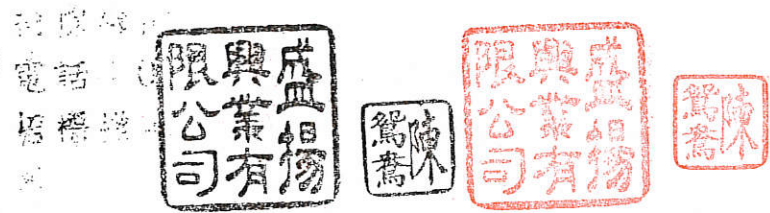 電話
盛揚
興業有
限公司
陳
鴛鴦
盛揚
興業有
限公司
陳
鴛鴦